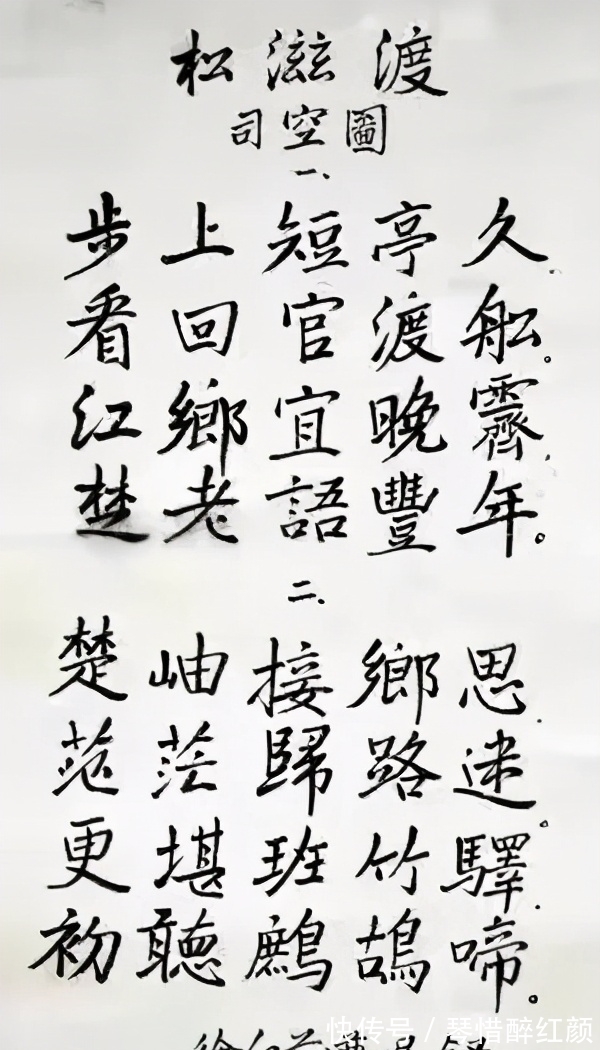 松滋渡
司空圖
一、
步上短亭久，
看回官渡舩。
江鄉宜晚霽，
楚老語豐年。
二、
楚岫接鄉思，
茫茫歸路迷。
更堪班竹驛，
初聽鷓鴣啼。
快传号 / 琴惜醉红颜